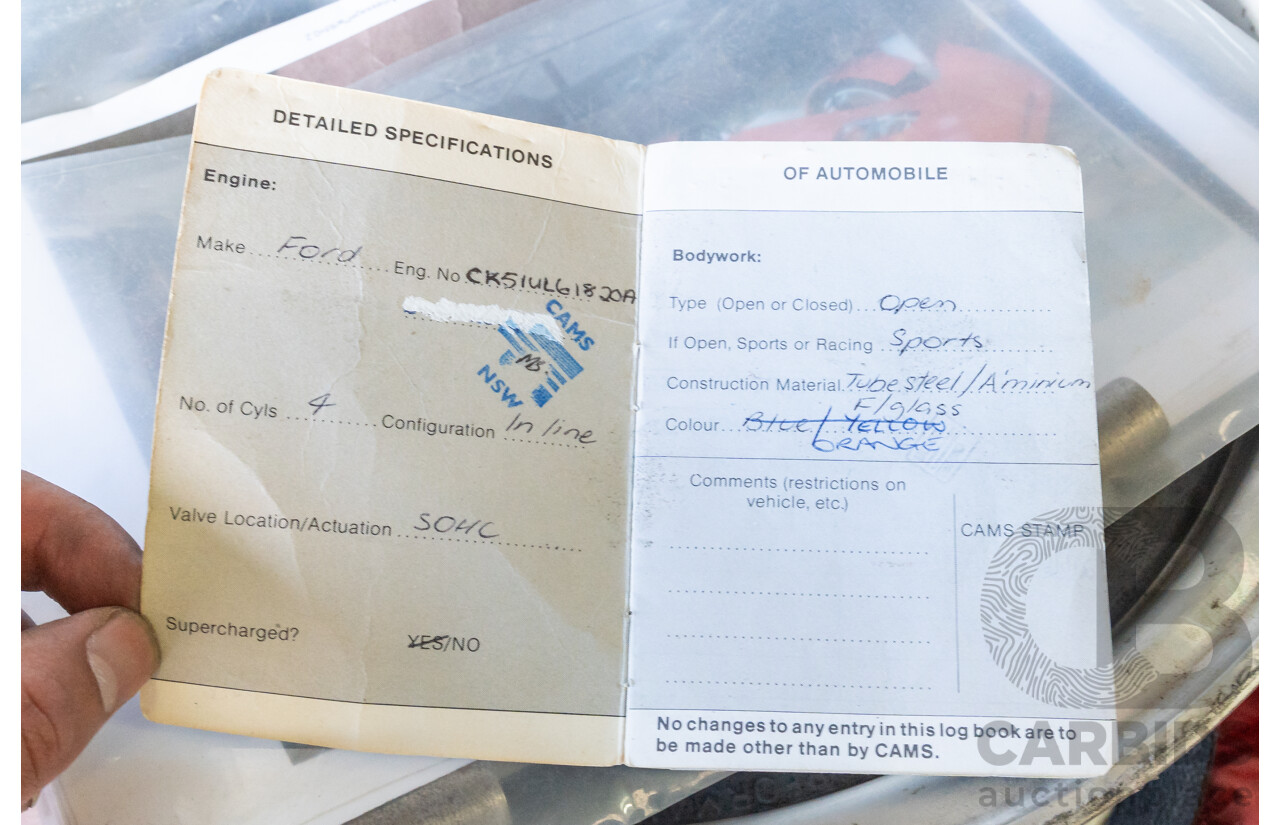 DETAILED SPECIFICATIONS
Engine:
Make ... Ford ... Eng. No. CK51UL61820A
CAMS
MS.
NSW
No. of Cyls ... 4 ... Configuration In line
Valve Location/Actuation ... SOHC ...
Supercharged? YES/NO
OF AUTOMOBILE
Bodywork:
Type (Open or Closed) ... Open ...
If Open, Sports or Racing ... Sports ...
Construction Material. Tube steel/A'minium
F/glass
Colour ... Blue/YELLOW
ORANGE
Comments (restrictions on
vehicle, etc.)
CAMS STAMP
No changes to any entry in this log book are to
be made other than by CAMS.
CARBI
auction